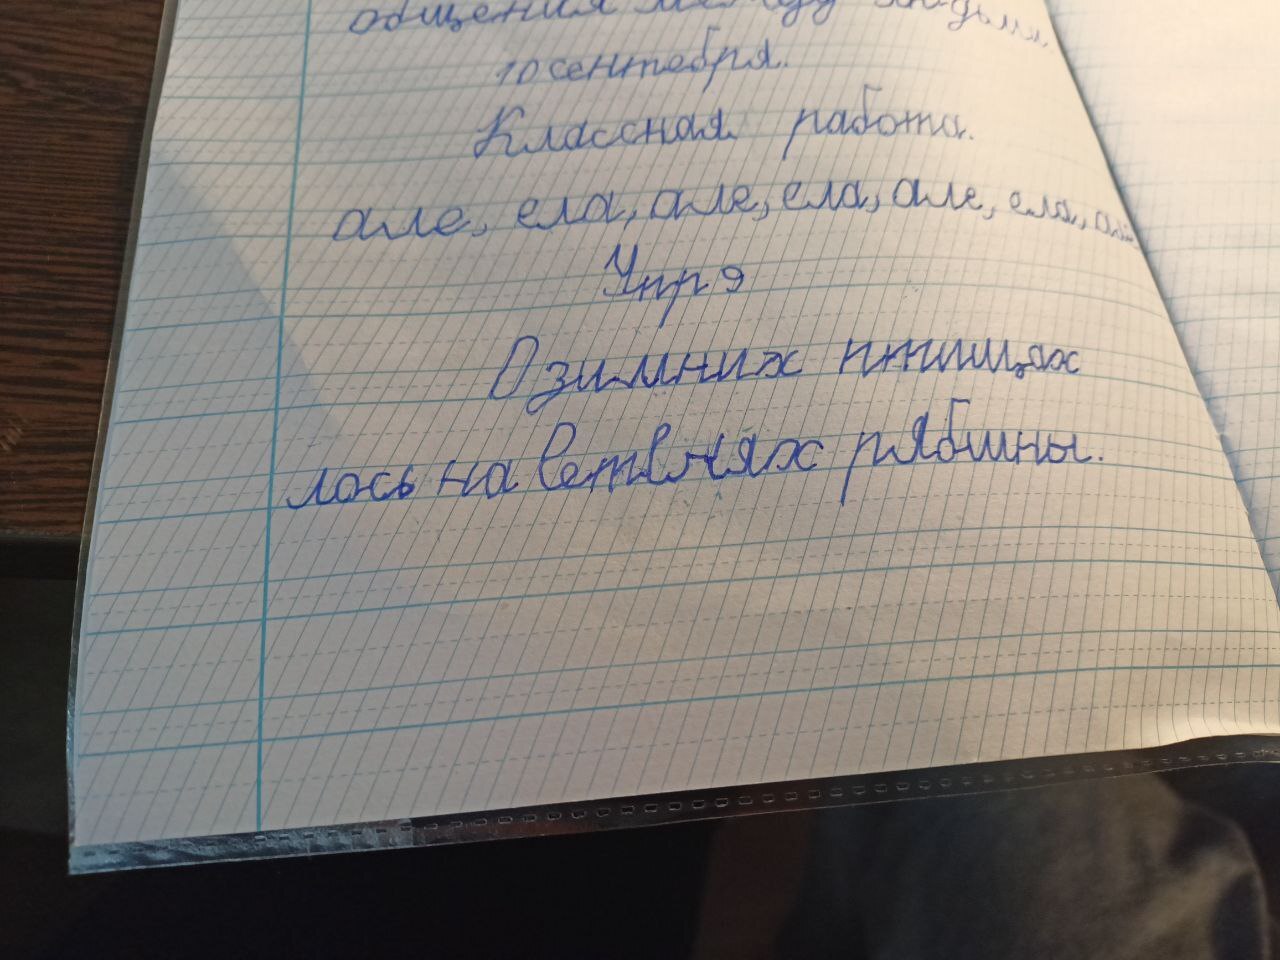 общения между людьми.
10 сентября.
Классная работа.
але, ела, але, ела, але, ела, але
Упр 9
О зимних птицах
лось на ветвях рябины.